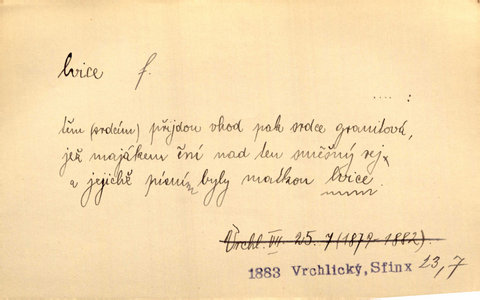 lvice f.
.... :
těm (srdcím) přijdou vhod pak srdce granitová,
jež majákem ční nad ten směšný rej
a jejichž písním byly matkou lvice.
Vrchl. VII. 25. 7 (1879-1882).
1883 Vrchlický, Sfinx 23,7